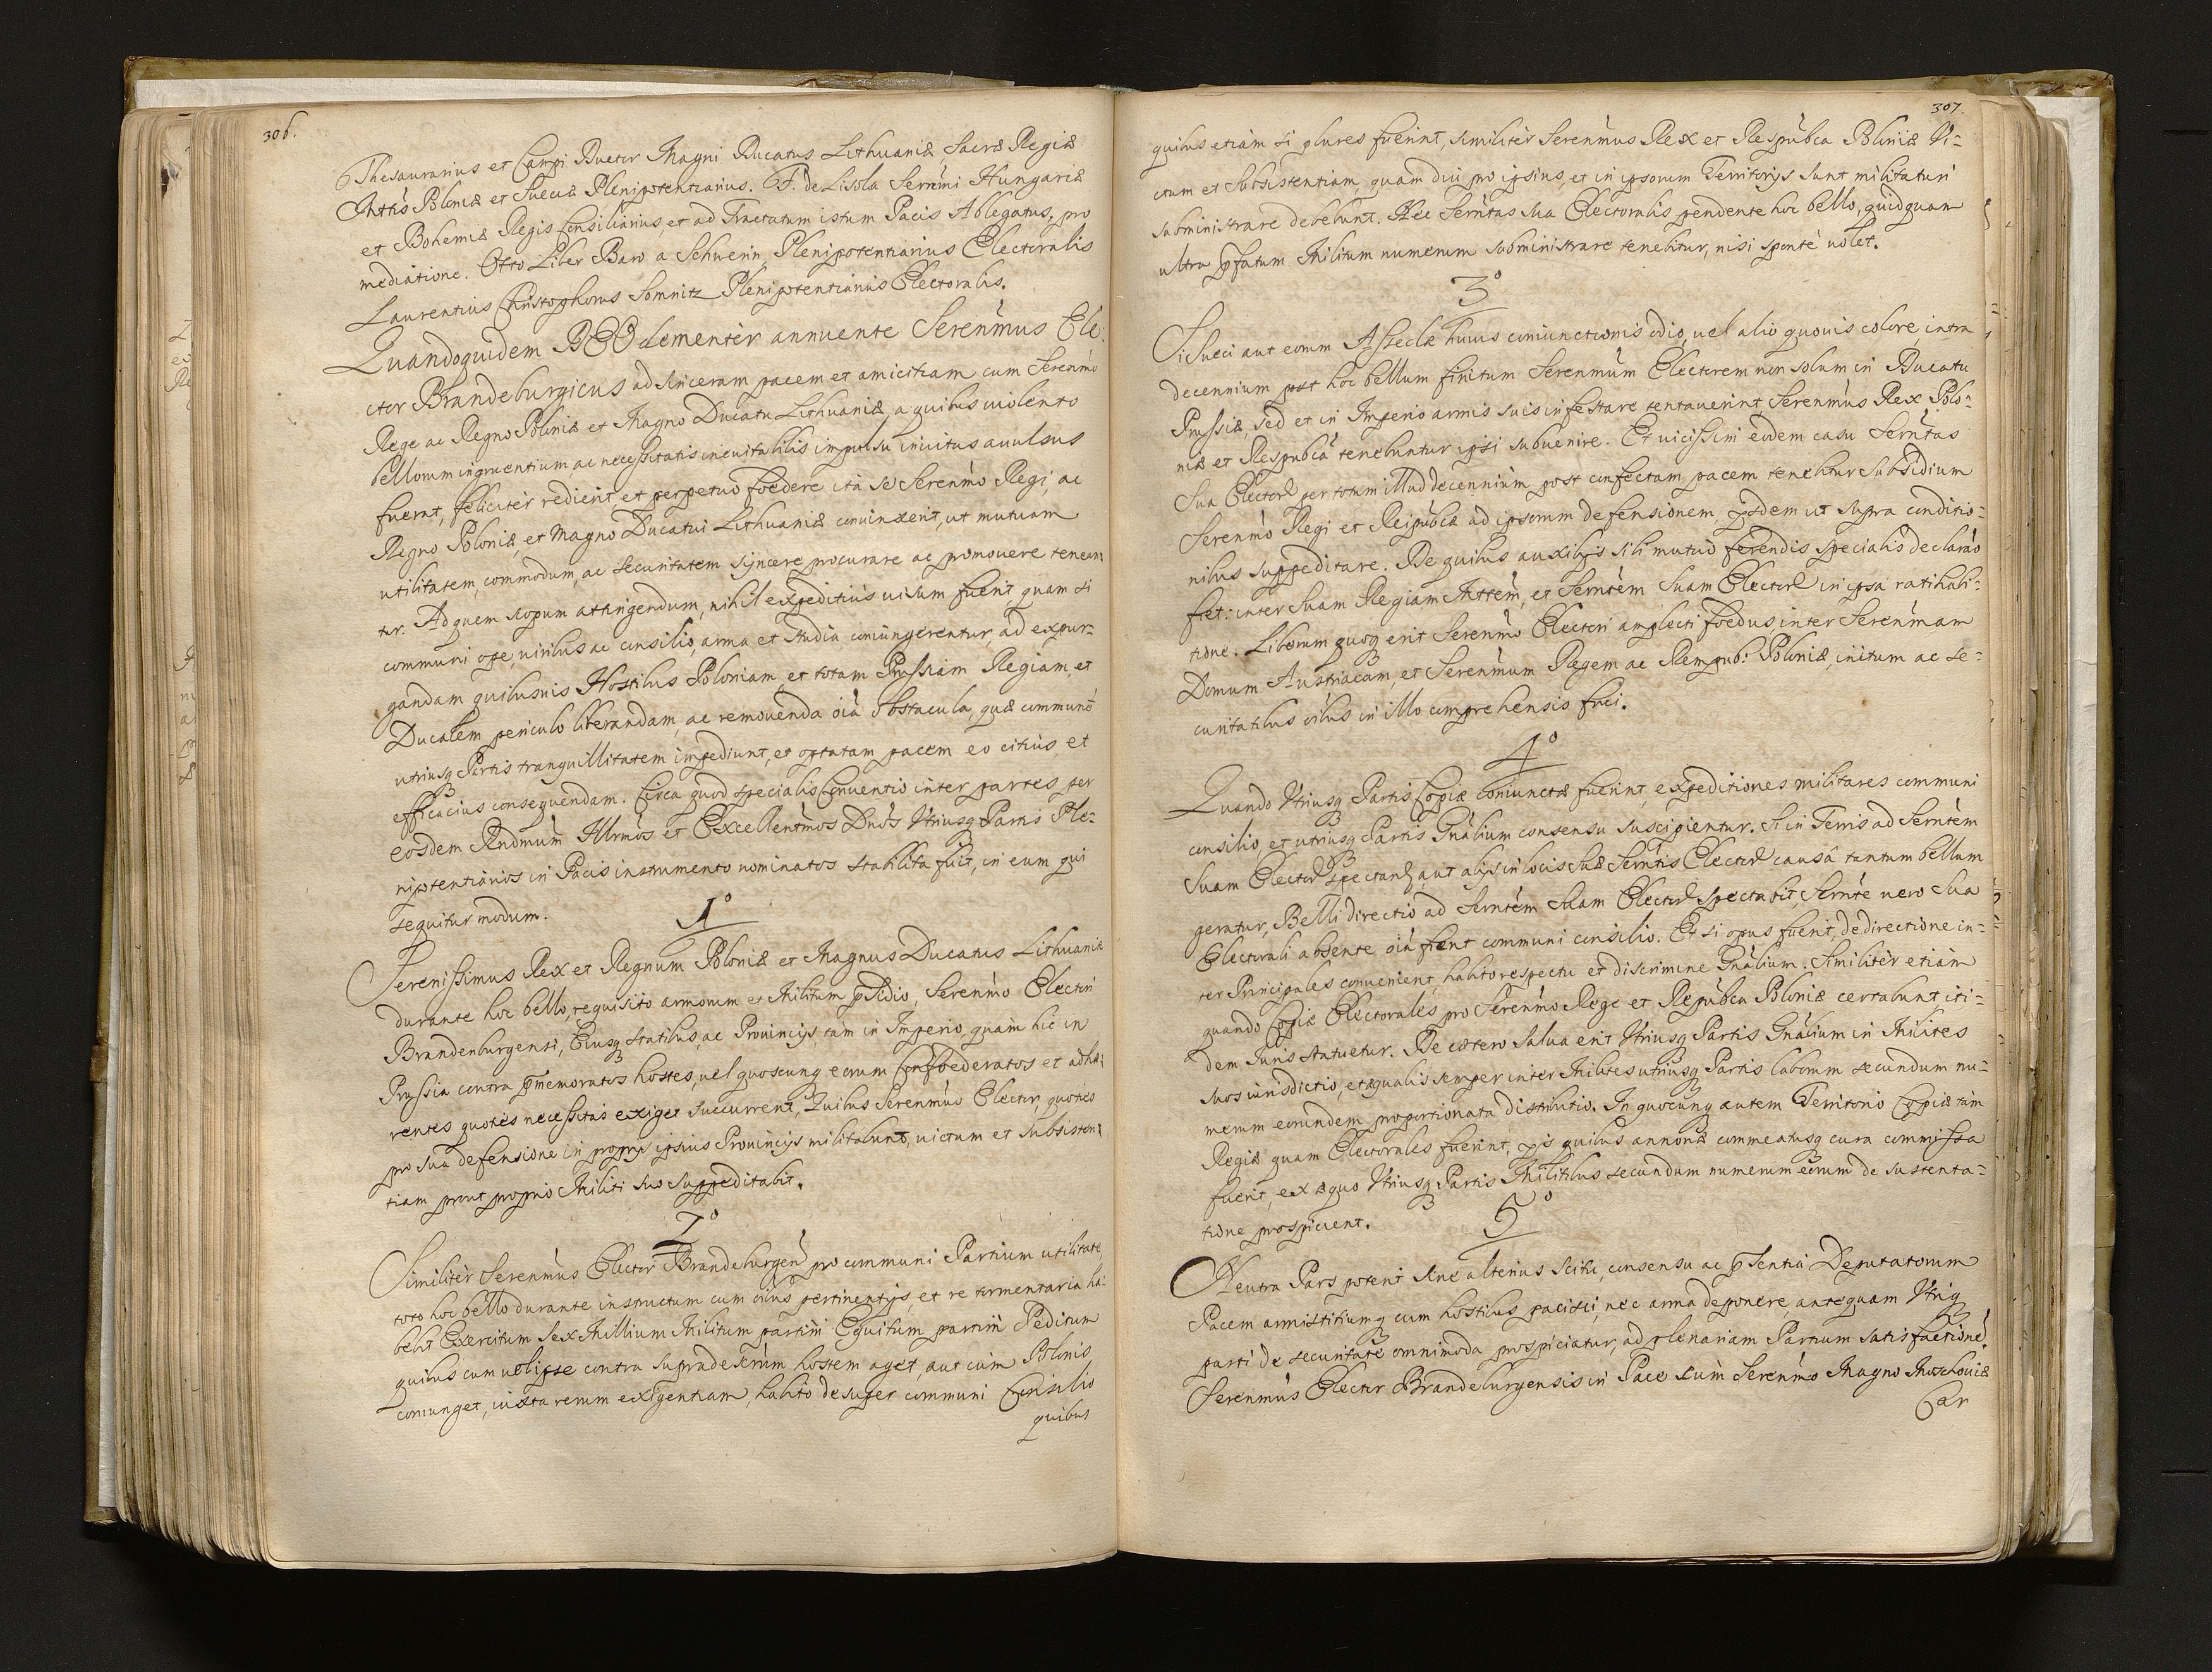 306.
Thesaurarius et Campi Ductor Magni Ducatus Lithuaniæ, Sacræ Regiæ
Mttis Poloniæ et Sueciæ Plenipotentiarius. F. de Lisola Serenmi Hungariæ
et Bohemiæ Regis Consiliarius, et ad Tractatum istum Pacis Ablegatus, pro
mediatione. Otto Liber Baro a Schwerin Plenipotentiarius Electoralis
Laurentius Christophorus Somnitz Plenipotentiarius Electoralis.
Quandoquidem DEO clementèr annuente Serenmus Ele:
ctor Brandeburgicus ad sinceram pacem et amicitiam cum Serenmo
Rege ac Regno Poloniæ et Magno Ducatu Lithuaniæ, a quibus uiolento
bellorum ingruentium ac necessitatis ineuitabilis impulsu inuitus auulsus
fuerat, felicitèr redierit, et perpetuo foedere ita se Serenmo Regi, ac
Regno Poloniæ, et Magno Ducatui Lithuaniæ conuinxerit, ut mutuam
utilitatem, commodum, ac securitatem syncere procurare ac promouere tenean:
tur. Ad quem scopum attingendum, nihil expeditius uisum fuerit, quam si
communi ope, uiribus ac consilio, arma et studia coniungerentur, ad expur:
gandam quibusuis Hostibus Poloniam, et totam Prussiam Regiam, et
Ducalem periculo liberandam, ac remouenda oia obstacula, quæ communē
utriusq Partis tranquillitatem impediunt, et optatam pacem eo citius, et
efficacius consequendam. Circa quod specialis Conuentio inter partes, per
eosdem Rndmum Illrmos et Excellentmos Dnos Vtriusq Partis Ple:
nipotentiarios in Pacis instrumento nominatos stabilita fuit, in eum qui
sequitur modum.
1º
Serenissimus Rex et Regnum Poloniæ et Magnus Ducatus Lithuaniæ
durante hoc bello, requisito armorum et Militum psidio, Serenmo Electori
Brandenburgensi, Eiusq statibus, ac Prouincijs, tam in Imperio, quam hic in
Prussia contra pmemoratos hostes, uel quoscunq eorum Confoederatos et adhæ:
rentes quoties necessitas exiget succurrent, Quibus Serenmus Elector, quoties
pro sua defensione in proprijs ipsius Prouincijs militabunt, uictum et subsisten:
tiam prout proprio Militi suo suppeditabit.
2º
Similitèr Serenmus Elector Brandeburgen pro communi Partium utilitate
toto hoc bello durante instructum cum oibus pertinentijs, et re tormentaria ha:
bebit Exercitum sex Millium Militum partim Equitum, partim Peditum
quibus cum uel ipse contra supradictum hostem aget, aut cum Polonis
coniunget, iuxta rerum exigentiam, habito desuper communi Consilio
quibus
307.
quibus etiam si plures fuerint, similitèr Serenmus Rex et Respubca Poloniæ Vi:
ctum et Subsistentiam, quam diu pro ipsius, et in ipsorum Territorijs sunt militaturi
subministrare debebunt. Nec Serntas sua Electoralis pendente hoc bello, quidquam
ultra pfatum Militum numerum subministrare tenebitur, nisi sponte uolet.
3º
Si Sueci aut eorum Asseclæ huius coniunctionis odio, uel alio quouis colore, intra
decennium post hoc bellum finitum Serenmum Electorem non solum in Ducatu
Prussiæ, sed et in Imperio armis suis infestare tentauerint, Serenmus Rex Polo:
niæ et Respubca tenebuntur ipsi subuenire. Et uicissim eodem casu Serntas
Sua Electorl per totum illud decennium post confectam pacem tenebitur subsidium
Serenmo Regi et Reipubcæ ad ipsorum defensionem, ijsdem ut supra conditio:
nibus suppeditare. De quibus auxilijs sibi mutuo ferendis specialis declarao
fiet: inter Suam Regiam Mttem, et Serntem Suam Electorl in ipsa ratihabi:
tione. Liberum quoq erit Serenmo Electori amplecti foedus inter Serenmam
Domum Austriacam, et Serenmum Regem ac Rempub: Poloniæ, initum ac se:
curitatibus oibus in illo comprehensis frui.
4º
Quando Vtriusq Partis Copiæ coniunctæ fuerint, expeditiones militares communi
consilio, et utriusq Partis Gnalium consensu suscipientur. Si in Terris ad Serntem
Suam Electorl spectan, aut alijs in locis Suæ Serntis Electorl causâ tantum bellum
geratur, Belli directio ad Serntem Suam Electorl spectabit, Sernte uero Sua
Electorali absente oia fient communi consilio. Et si opus fuerit, de directione in:
ter Principales conuenient, habito respectu et discrimine Gnalium. Similitèr etiam
quando Copiæ Electorales pro Serenmo Rege et Repubca Poloniæ certabunt, iti:
dem Iuris statuetur. De cætero salua erit Vtriusq Partis Gnalium in Milites
suos iurisdictio, et æqualis semper inter Milites utriusq Partis laborum secundum nu:
merum eorundem proportionata distributio. In quocunq autem Territorio Copiæ tam
Regiæ quam Electorales fuerint, ijs quibus annonæ commeatusq cura commissa
fuerit, ex æquo Vtriusq Partis Militibus secundum numerum eorum de sustenta:
tione prospicient.
5º
Neutra Pars poterit sine alterius scitu, consensu ac psentia Deputatorum
Pacem armistitiumq cum hostibus pacisci, nec arma deponere, antequam Vtriq
parti de securitate omnimoda prospiciatur, ad plenariam Partium satisfactionē.
Serenmus Elector Brandeburgensis in Pace cum Serenmo Magno Moschouiæ
Czar